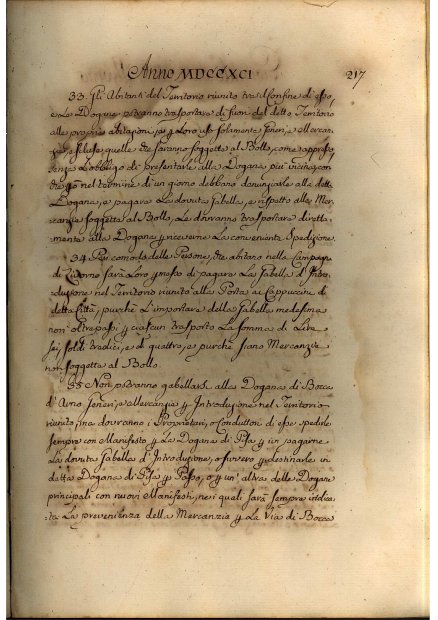 Anno MDCCXCI 217
33. Gli Abitanti del Territorio riunito tra il confine di esso,
e la Dogana potranno trasportare di fuori del detto Territorio
alle proprie abitazioni, per loro uso solamente Generi, e Mercan-
zie, escluse quelle che saranno soggette al Bollo, come
l'obbligo di presentarle alla Dogana più vicina, con
che nel termine di un giorno debbano denunziarle alla detta
Dogana, e pagare la dovuta Gabella, e rispetto alle Mer-
canzie soggette al Bollo, le dovranno trasportare diretta-
mente alla Dogana, e riceverne la conveniente spedizione.
34. Per comodo delle Persone, che abitano nella Campagna
di Livorno sarà loro permesso di pagare la Gabella d'Intro-
duzione nel Territorio riunito alla Porta ai Cappuccini di
detta Città, purchè l'importare della Gabella medesima
non oltrepassi per ciascun trasporto la somma di Lire
sei, soldi tredici, e d. quattro, e purchè siano Mercanzie
non soggette al Bollo.
35. Non potranno gabellarsi alla Dogana di Bocca
d'Arno Generi, e Mercanzie per Introduzione nel Territorio
riunito, ma dovranno i Proprietari, o Conduttori di esse spedirle
sempre con Manifesto per la Dogana di Pisa per ivi pagarne
la dovuta Gabella d'Introduzione, o farsene destinarle in
detta Dogana di Pisa per Passo, o per un'altra delle Dogane
principali con nuovi Manifesti, nei quali sarà sempre indica-
ta la provenienza della Mercanzia per la Via di Bocca